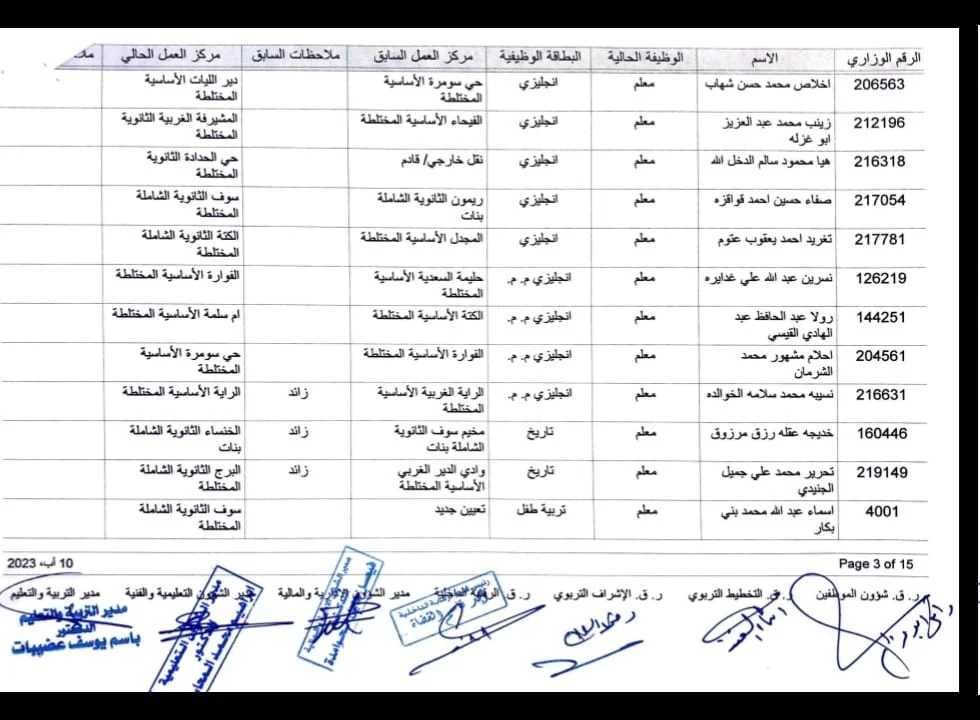 الرقم الوزاري الاسم الوظيفة الحالية البطاقة الوظيفية مركز العمل السابق ملاحظات السابق مركز العمل الحالي
206563 اخلاص محمد حسن شهاب معلم انجليزي حي سومرة الأساسية دير الليات الأساسية
المختلطة المختلطة
212196 زينب محمد عبد العزيز معلم انجليزي الفيحاء الأساسية المختلطة المشيرفة الغربية الثانوية
ابو غزله المختلطة
216318 هيا محمود سالم الدخل الله معلم انجليزي نقل خارجي/ قادم حي الحدادة الثانوية
المختلطة
217054 صفاء حسين احمد قواقزه معلم انجليزي ريمون الثانوية الشاملة سوف الثانوية الشاملة
بنات المختلطة
217781 تغريد احمد يعقوب عتوم معلم انجليزي المجدل الأساسية المختلطة الكتة الثانوية الشاملة
المختلطة
126219 نسرين عبد الله علي غدايره معلم انجليزي م. م. حليمة السعدية الأساسية الفوارة الأساسية المختلطة
المختلطة
144251 رولا عبد الحافظ عبد معلم انجليزي م. م. الكتة الأساسية المختلطة ام سلمة الأساسية المختلطة
الهادي القيسي
204561 احلام مشهور محمد معلم انجليزي م. م. الفوارة الأساسية المختلطة حي سومرة الأساسية
الشرمان المختلطة
216631 نسيبه محمد سلامه الخوالده معلم انجليزي م. م. الراية الغربية الأساسية زائد الراية الأساسية المختلطة
المختلطة
160446 خديجه عقله رزق مرزوق معلم تاريخ مخيم سوف الثانوية زائد الخنساء الثانوية الشاملة
الشاملة بنات بنات
219149 تحرير محمد علي جميل معلم تاريخ وادي الدير الغربي زائد البرج الثانوية الشاملة
الجنيدي الأساسية المختلطة المختلطة
4001 اسماء عبد الله محمد بني معلم تربية طفل تعيين جديد سوف الثانوية الشاملة
بكار المختلطة
Page 3 of 15 10 آب، 2023
ر. ق. شؤون الموظفين ر. ق. التخطيط التربوي ر. ق. الإشراف التربوي ر. ق. الرقابة الداخلية مدير الشؤون الإدارية والمالية مدير الشؤون التعليمية والفنية مدير التربية والتعليم
مدير التربية والتعليم
الدكتور
باسم يوسف عضيبات